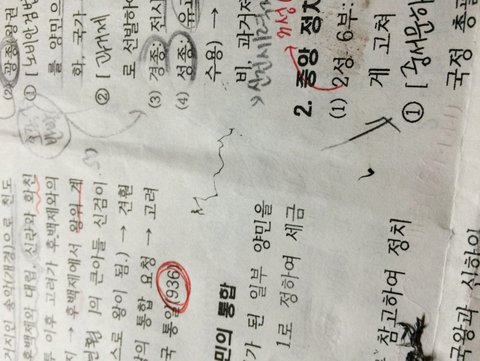 거지인 송악(개경)으로 천도
후백제와 대립, 신라와 화친
부 이후 고려가 후백제와의
지 → 후백제에서 왕위 계
]의 큰아들 신검이
스로 왕이 됨.) → 견훤
의 통합 요청 → 고려
국 통일(936)
민의 통합
가 된 일부 양민을
1로 정하여 세금
(2) 광종: 왕권
① [노비안검법
를 양민으
화, 국가
② [과거제
로 선발하
(3) 경종: 전시
(4) 성종: 유교
수용) →
비, 과거제
2. 중앙 정치
(1) 2성 6부:
게 고쳐
① [중서문하
국정 총괄
참고하여 정치
국왕과 신하의